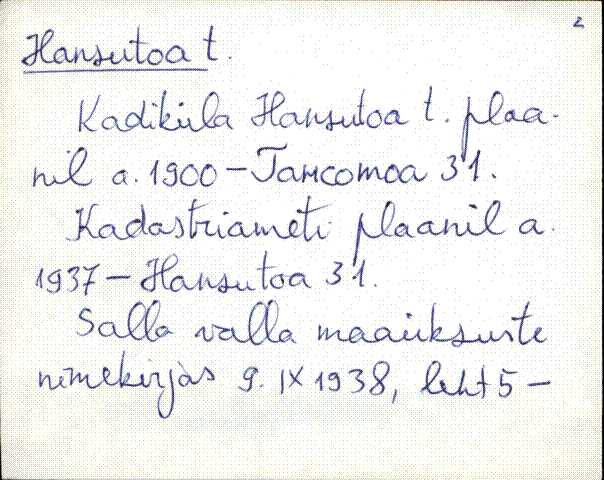 2
Hansutoa t.
Kadiküla Hansutoa t. plaa-
nil a. 1900 – Гансотоа 31.
Kadastriameti plaanil a.
1937 – Hansutoa 31.
Salla valla maaüksuste
nimekirjas 9. IX 1938, leht 5 –